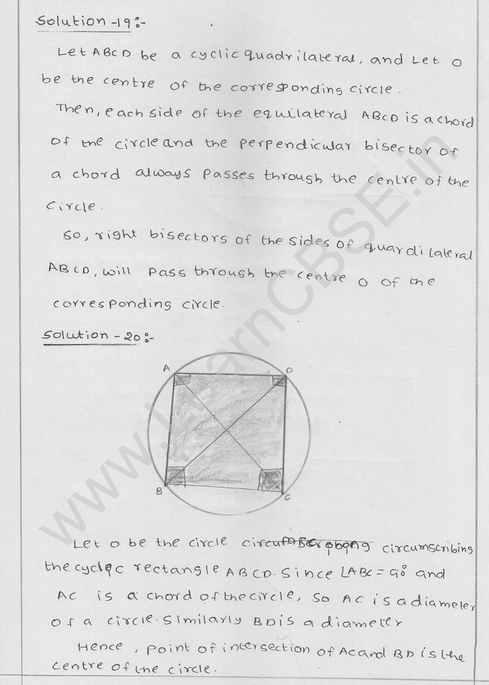 Solution -19:-
Let ABCD be a cyclic quadrilateral, and Let O
be the centre of the corresponding circle.
Then, each side of the equilateral ABCD is a chord
of the circle and the perpendicular bisector of
a chord always passes through the centre of the
circle.
So, right bisectors of the sides of quardilateral
ABCD, will pass through the centre O of the
corresponding circle.
Solution -20:-
A
D
B
C
Let O be the circle circumscribing
the cyclec rectangle ABCD. Since ∠ABC = 90° and
AC is a chord of the circle, so AC is a diameter
of a circle. Similarly BD is a diameter
Hence, point of intersection of AC and BD is the
centre of the circle.
www.LearnCBSE.in